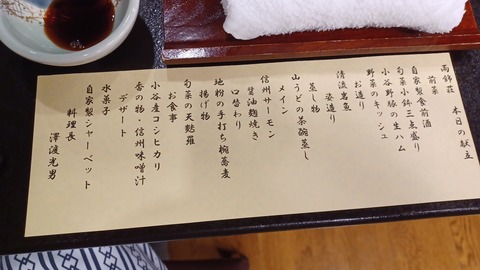 雨飾荘　本日の献立
前菜
自家製食前酒
旬菜小鉢三点盛り
小谷野豚の生ハム
野菜のキッシュ
お造り
清流岩魚
姿造り
蒸し物
山うどの茶碗蒸し
メイン
信州サーモン
醤油麹焼き
口替わり
地粉の手打ち椀蕎麦
揚げ物
旬菜の天麩羅
お食事
小谷産コシヒカリ
香の物・信州味噌汁
デザート
水菓子
自家製シャーベット
料理長　澤渡光男